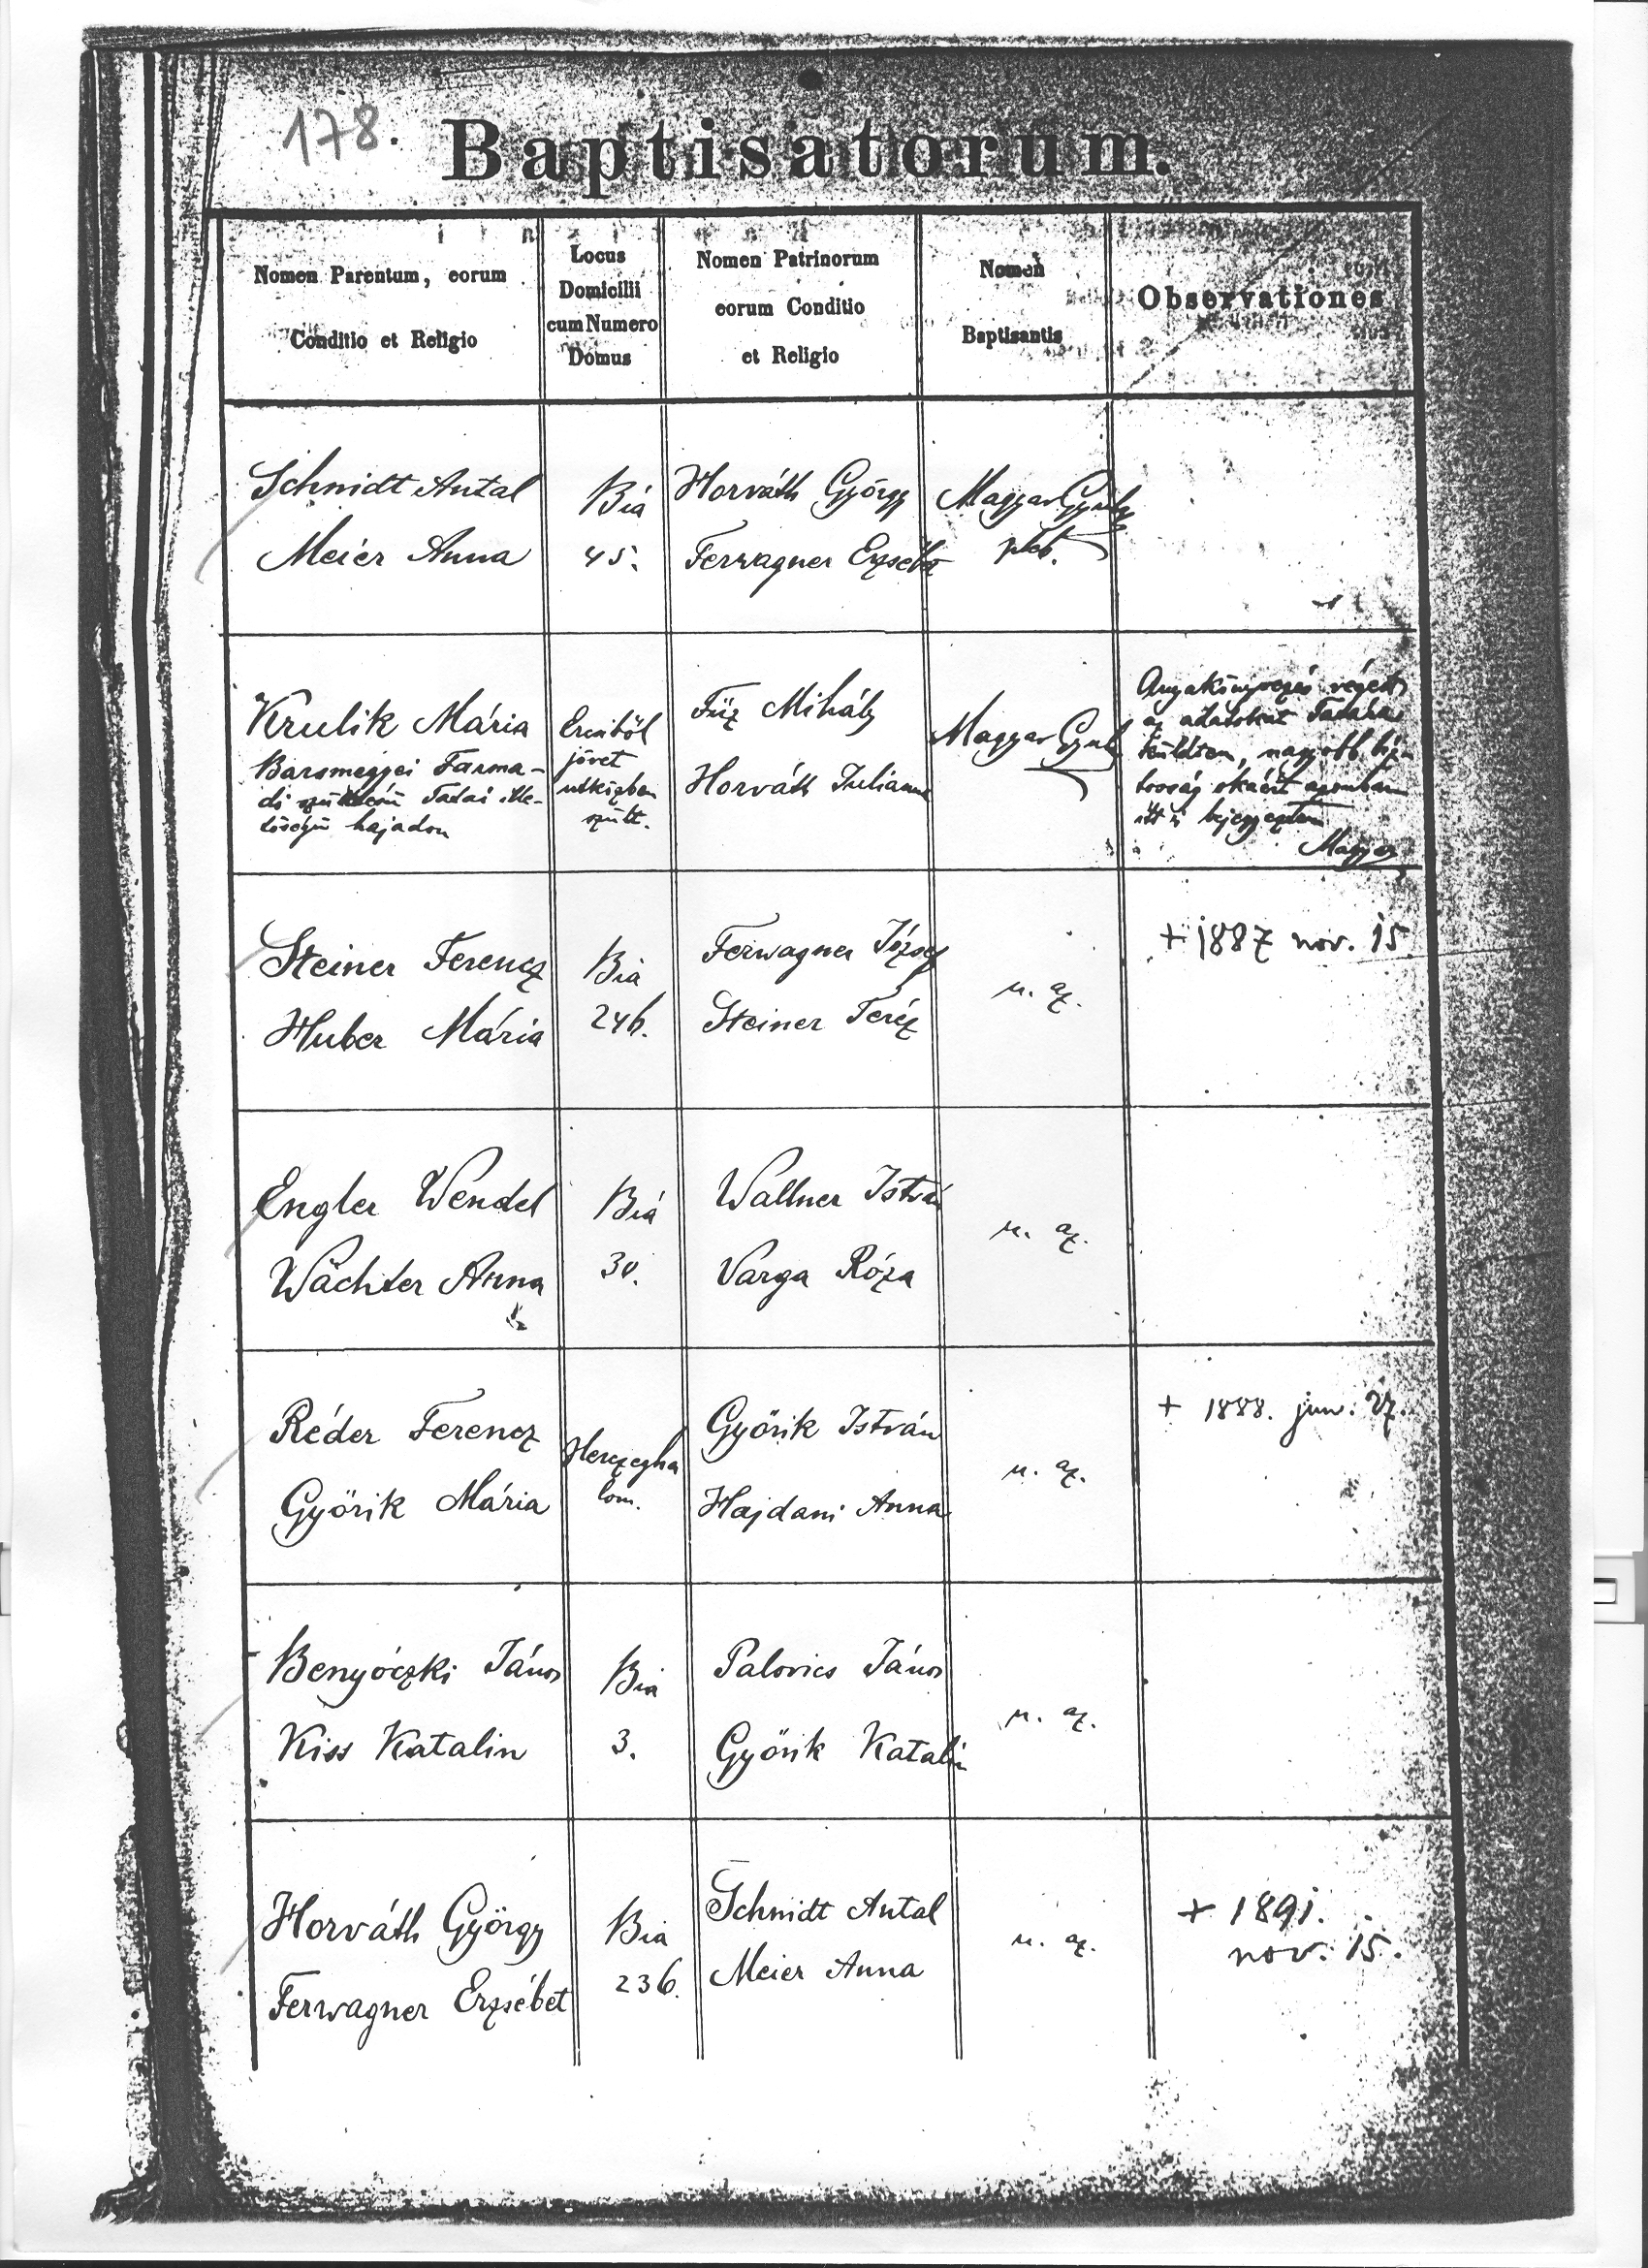 178.
Baptisatorum.
Nomen Parentum, eorum
Conditio et Religio
Locus
Domicilii
cum Numero
Domus
Nomen Patrinorum
eorum Conditio
et Religio
Nomen
Baptisantis
Observationes
Schmidt Antal
Meier Anna
Bia
45.
Horváth György
Ferwagner Erzsébet
Magyar Gyula
pleb.
Krulik Mária
Barsmegyei Farma-
di születésü Tatai ille-
tőségü hajadon
jövet
utközben
szült.
Füz Mihály
Horváth Julianna
Magyar Gyula
Anyakönyvezés végett
az adatokat Tatára
küldtem, nagyobb biz-
tosság okáért azonban
itt is bejegyeztem
Magyar
Steiner Ferencz
Huber Mária
Bia
246.
Ferwagner József
Steiner Teréz
u. az.
+ 1887 nov. 15.
Engler Wendel
Wachter Anna
Biá
30.
Wallner István
Varga Róza
u. az.
Réder Ferencz
Györik Mária
Herczegha
lom.
Györik István
Hajdani Anna
u. az.
+ 1888. jun. 27.
Benyóczki János
Kiss Katalin
Bia
3.
Palovics János
Györik Katalin
u. az.
Horváth György
Ferwagner Erzsébet
Bia
236.
Schmidt Antal
Meier Anna
u. az.
+ 1891.
nov. 15.